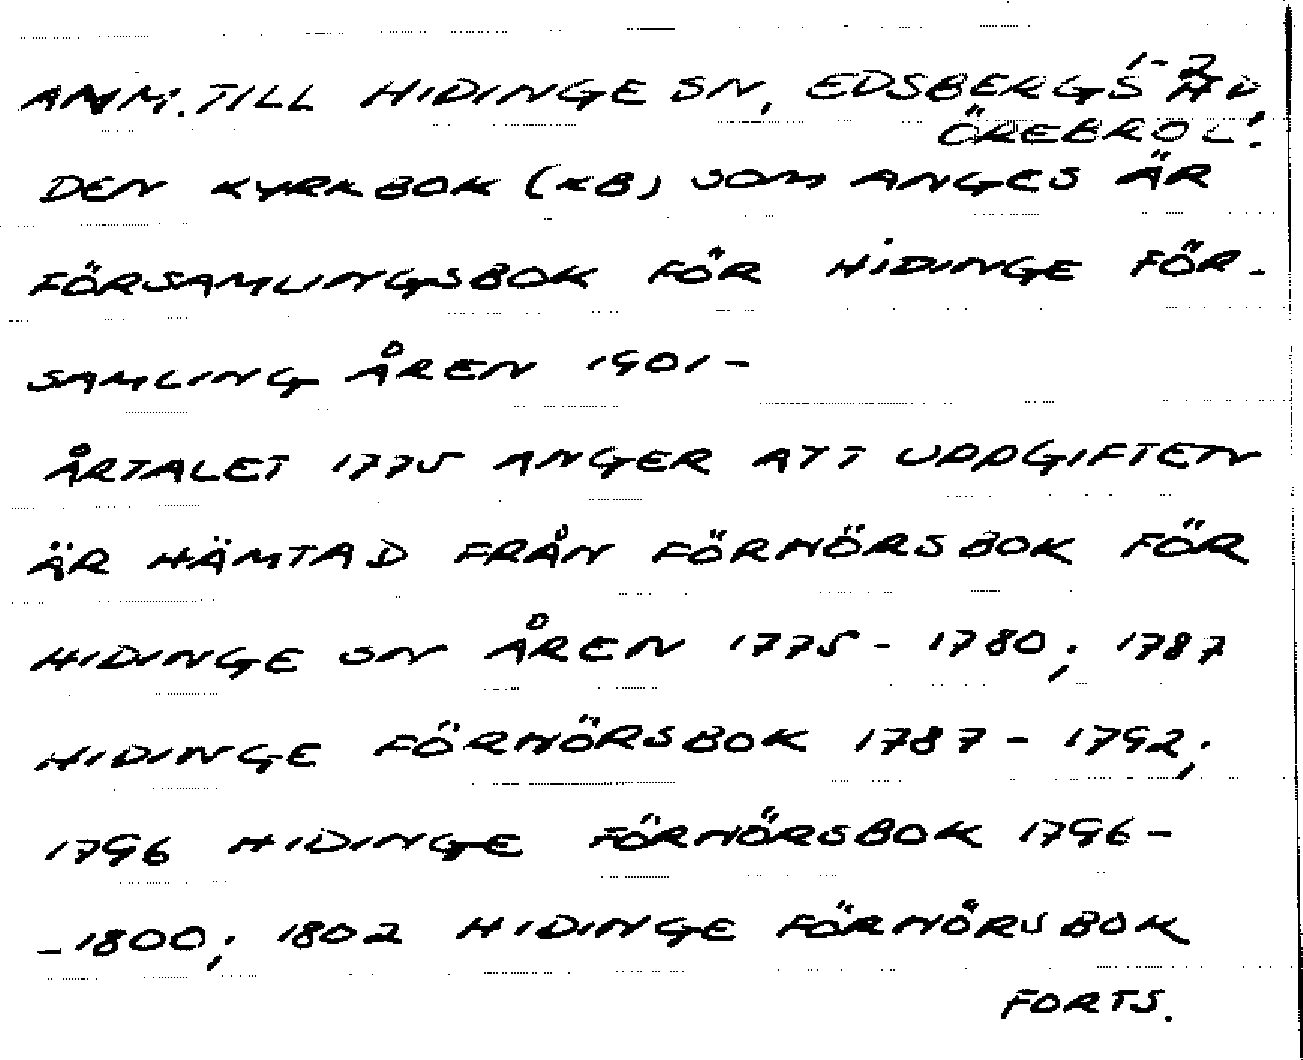 1-2
ANM. TILL HIDINGE SN, EDSBERGS HD,
ÖREBRO L.
DEN KYRKBOK (KB) SOM ANGES ÄR
FÖRSAMLINGSBOK FÖR HIDINGE FÖR-
SAMLING ÅREN 1901-
ÅRTALET 1775 ANGER ATT UPPGIFTEN
ÄR HÄMTAD FRÅN FÖRHÖRSBOK FÖR
HIDINGE SN ÅREN 1775 - 1780; 1787
HIDINGE FÖRHÖRSBOK 1787 - 1792;
1796 HIDINGE FÖRHÖRSBOK 1796-
-1800; 1802 HIDINGE FÖRHÖRSBOK
FORTS.